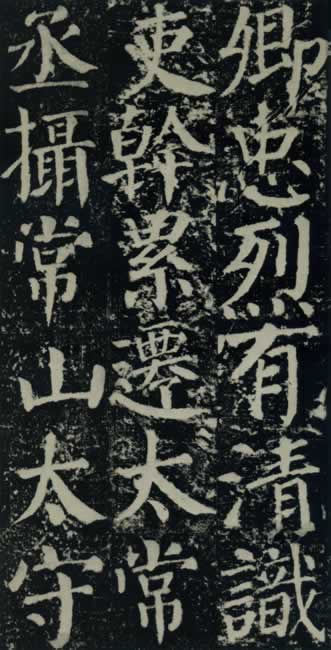 卿忠烈有清識
吏幹累遷太常
丞攝常山太守